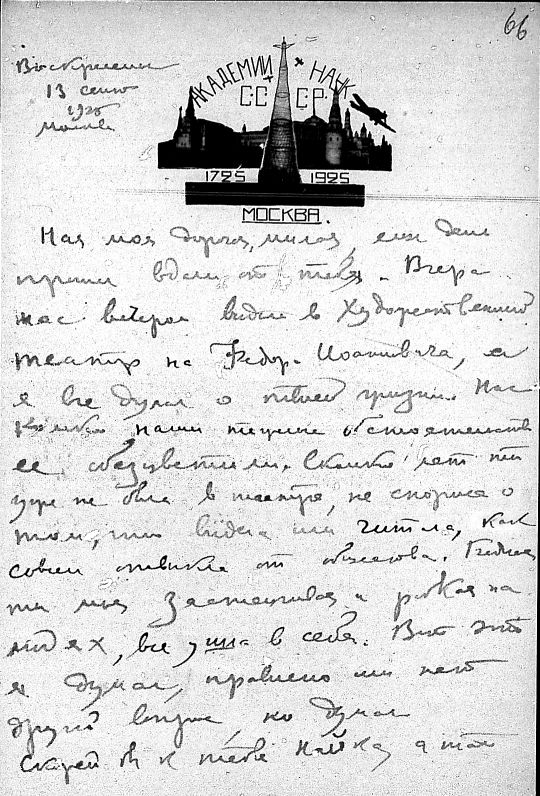 66
Воскресенье
13 сент
1925
Москва
АКАДЕМИЯ НАУК
СССР
1725 1925
МОСКВА.
Ная моя дорогая, милая, еще день
прошел вдали от тебя. Вчера
нас вечером в Художественный
театр на Федора Иоанновича, и
я все думал о твоей жизни. Нас
колько наши обстоятельства
ее обесцветили. Сколько лет ты
уже не была в театре, не спорила о
том, что видела или читала, как
совсем отвыкла от общества. Бедная
ты моя застенчивая и робкая на
людях, все ушла в себя. Вот это
я думал, правильно или нет
другой вопрос, но думал
Скорей бы к тебе Найка, а то